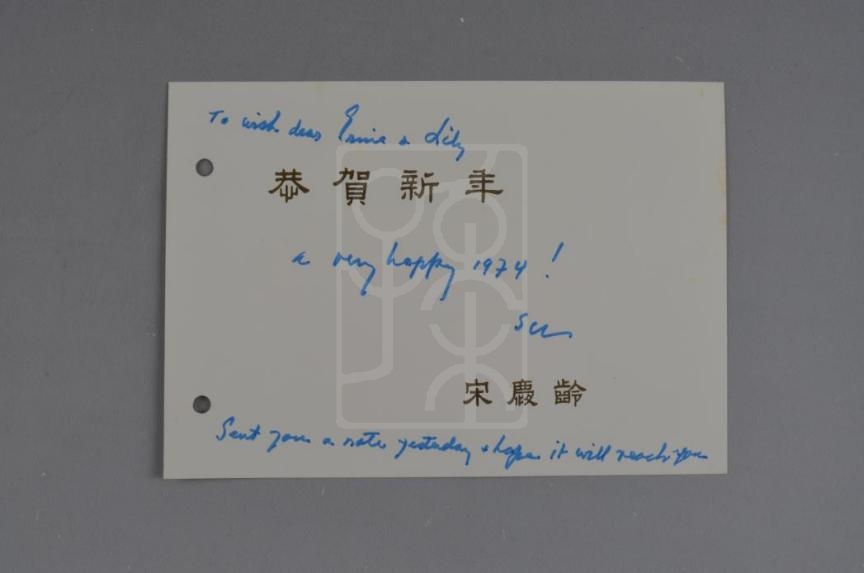 To wish dear Ernie & Lily
恭賀新年
a very happy 1974!
SCL
宋慶齡
Sent you a note yesterday & hope it will reach you